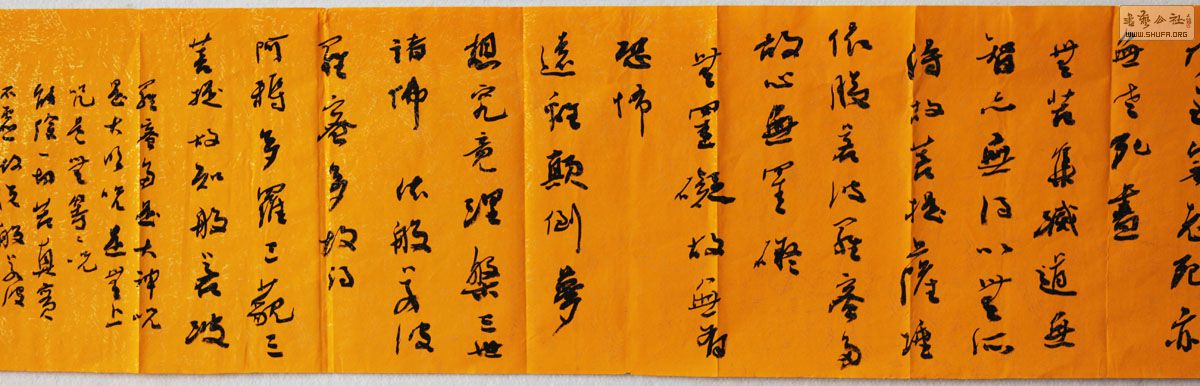 乃至無老死亦
無老死盡
無苦集滅道無
智亦無得以無所
得故菩提薩埵
依般若波羅蜜多
故心無罣礙
無罣礙故無有
恐怖
遠離顛倒夢
想究竟涅槃三世
諸佛依般若波
羅蜜多故得
阿耨多羅三藐三
菩提故知般若波
羅蜜多是大神咒
是大明咒是無上
咒是無等々咒
能除一切苦真實
不虛故說般若波
書藝公社
WWW.SHUFA.ORG